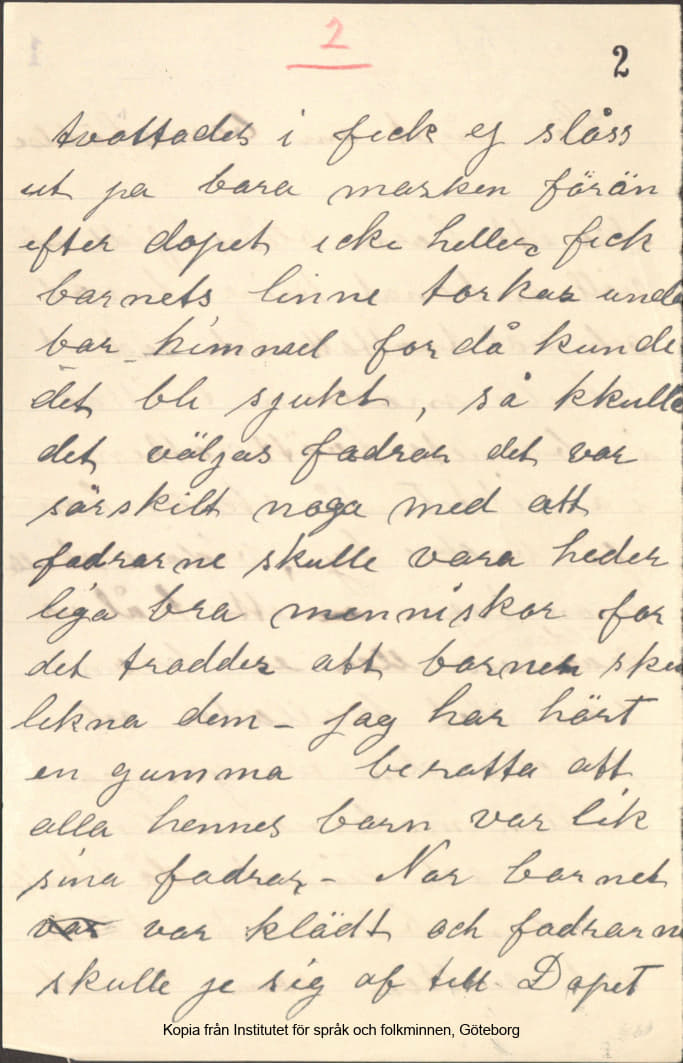 2
2
tvattades i feck ej slåss
ut pa bara marken förän
efter dopet icke heller fick
barnets linne torkas unde
bar himmel for då kunde
det bli sjukt, så kkulle
det väljas fadrar det var
särskilt noga med att
fadrarne skulle vara heder
liga bra menniskor for
det traddes att barnen sku
likna dem - Jag har härt
en gumma beratta att
alla hennes barn var lik
sina fadrar - Nar barnet
var var klädt och fadrarn
skulle je sig af till Dopet
Kopia från Institutet för språk och folkminnen, Göteborg